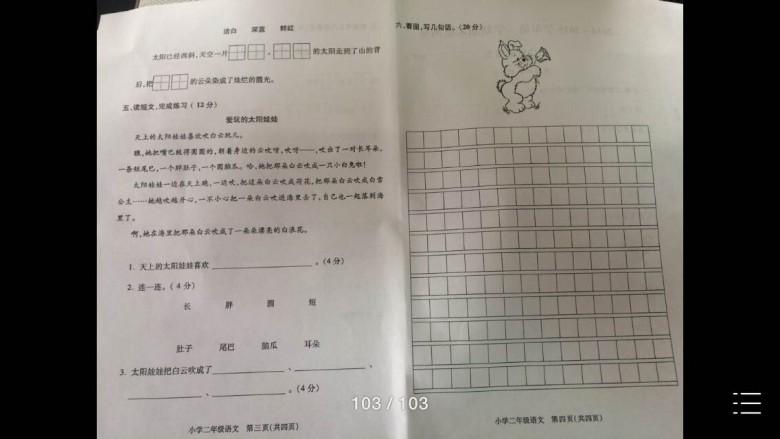 洁白 深蓝 鲜红
太阳已经西斜,天空一片 。 的太阳走到了山的背
后,把 的云朵染成了绚烂的霞光。
五、读短文,完成练习(12分)
爱玩的太阳娃娃
天上的太阳娃娃喜欢吹白云玩儿。
瞧,她把嘴巴鼓得圆圆的,朝着身边的云吹呀,吹呀——,吹出了一对长耳朵,
一条短尾巴,一个胖肚子,一个圆脑瓜。哈,她把那朵白云吹成一只小白兔啦!
太阳娃娃一边在天上跑,一边吹,把这朵白云吹成荷花,把那朵白云吹成白雪
公主……她越吹越开心,一不小心把一朵白云吹进海里去了,自己也一起落到海
里了。
啊,她在海里把那朵白云吹成了一朵朵漂亮的白浪花。
1. 天上的太阳娃娃喜欢 。(4分)
2. 连一连。(4分)
长 胖 圆 短
肚子 尾巴 脑瓜 耳朵
3. 太阳娃娃把白云吹成了 、 、
、 。(4分)
小学二年级语文 第三页(共四页)
六、看图,写几句话。(20分)
小学二年级语文 第四页(共四页)
103 / 103